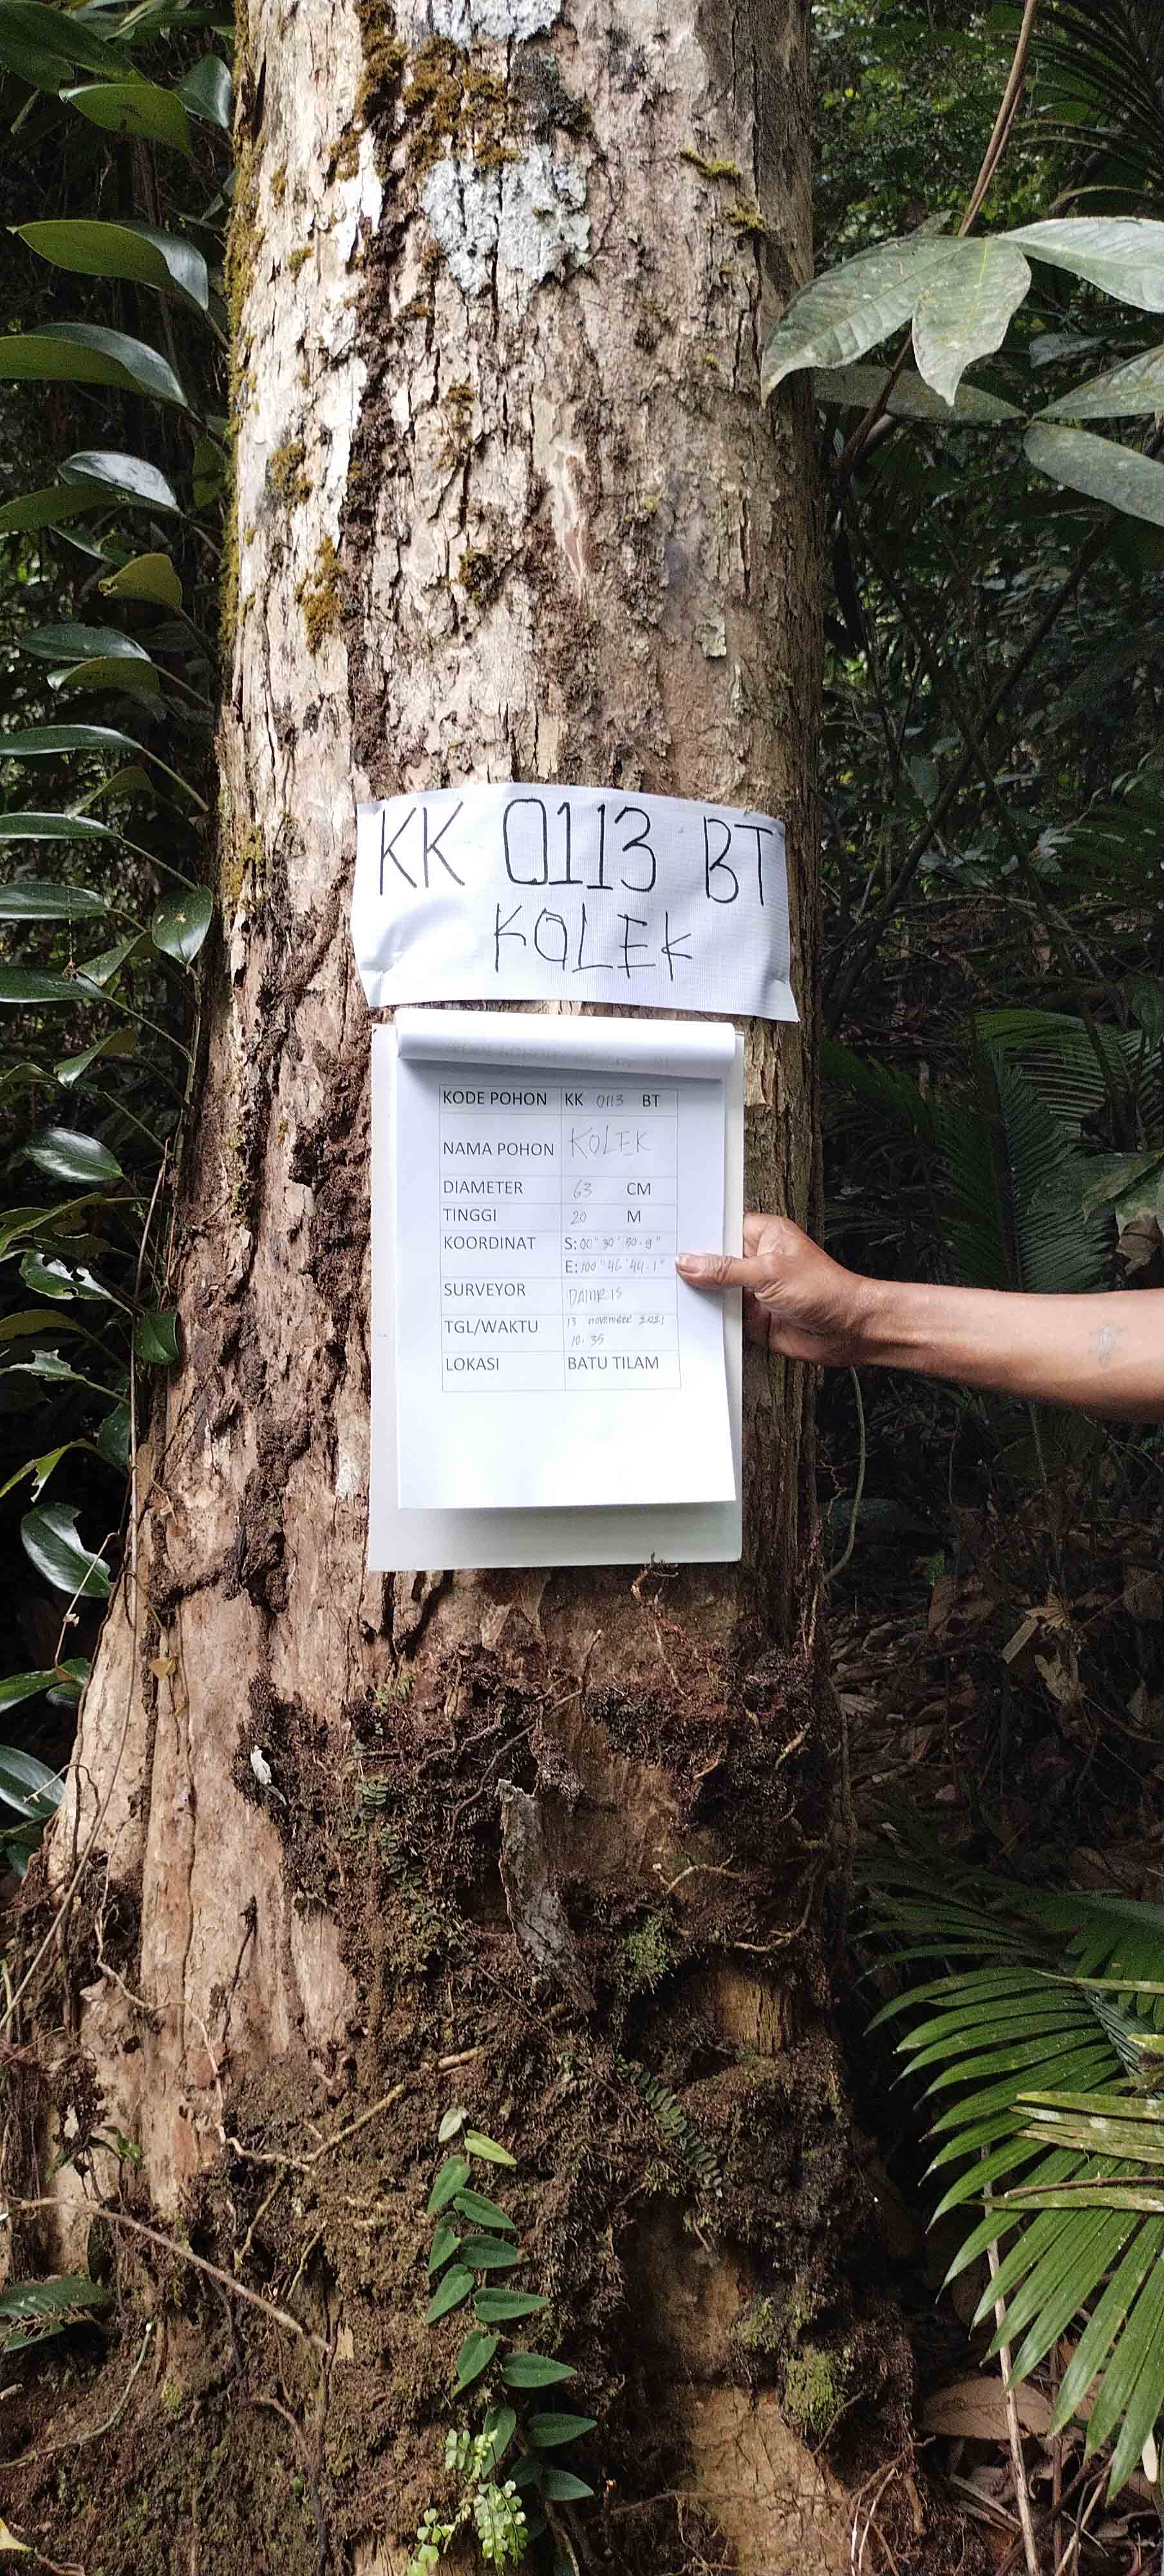 KK 0113 BT
KOLEK
KODE POHON KK 0113 BT
NAMA POHON KOLEK
DIAMETER 63 CM
TINGGI 20 M
KOORDINAT S:00°30'50.9"
E:100°46'44.1"
SURVEYOR DAMRIS
TGL/WAKTU 13 NOVEMBER 2021
10.35
LOKASI BATU TILAM